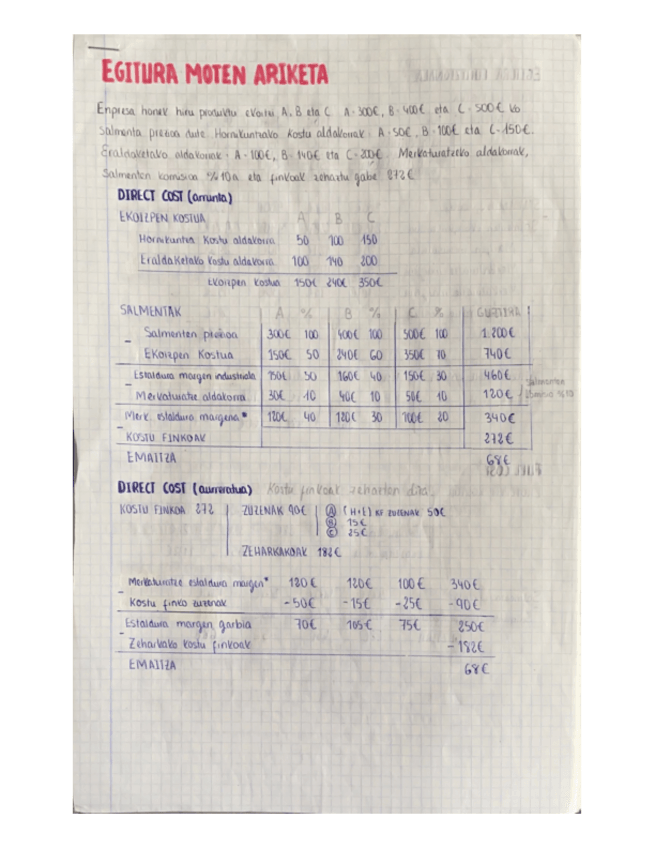 EGITURA MOTEN ARIKETA
Enpresa honek hiru produktu ekoitzi A, B eta C. A-300€, B-400€ eta C-500€ ko
Salmenta prezioa dute. Hornikuntzako kostu aldakorrak: A-50€, B-100€ eta C-150€.
Eraldaketako aldakorrak: A-100€, B-140€ eta C-200€. Merkaturatzeko aldakorrak,
Salmenten komisioa %10a eta finkoak zehaztu gabe 272€
DIRECT COST (arrunta)
EKOIZPEN KOSTUA A B C
Hornikuntza Kostu aldakorra 50 100 150
Eraldaketako Kostu aldakorra 100 140 200
Ekoizpen Kostua 150€ 240€ 350€
SALMENTAK A % B % C % GUZTIRA
- Salmenten prezioa 300€ 100 400€ 100 500€ 100 1.200€
Ekoizpen Kostua 150€ 50 240€ 60 350€ 70 740€
- Estaldura margen industriala 150€ 50 160€ 40 150€ 30 460€
Merkaturatze aldakorra 30€ 10 40€ 10 50€ 10 120€ Salmenten komisio %10
- Merk. estaldura margena* 120€ 40 120€ 30 100€ 20 340€
KOSTU FINKOAK 272€
EMAITZA 68€
DIRECT COST (aurreratua) Kostu finkoak zehazten dira.
KOSTU FINKOA 272 ZUZENAK 90€ A (H+E) KF ZUZENAK 50€
B 15€
C 25€
ZEHARKAKOAK 182€
- Merkaturatze estaldura margen* 120€ 120€ 100€ 340€
Kostu finko zuzenak -50€ -15€ -25€ -90€
- Estaldura margen garbia 70€ 105€ 75€ 250€
Zeharkako kostu finkoak -182€
EMAITZA 68€